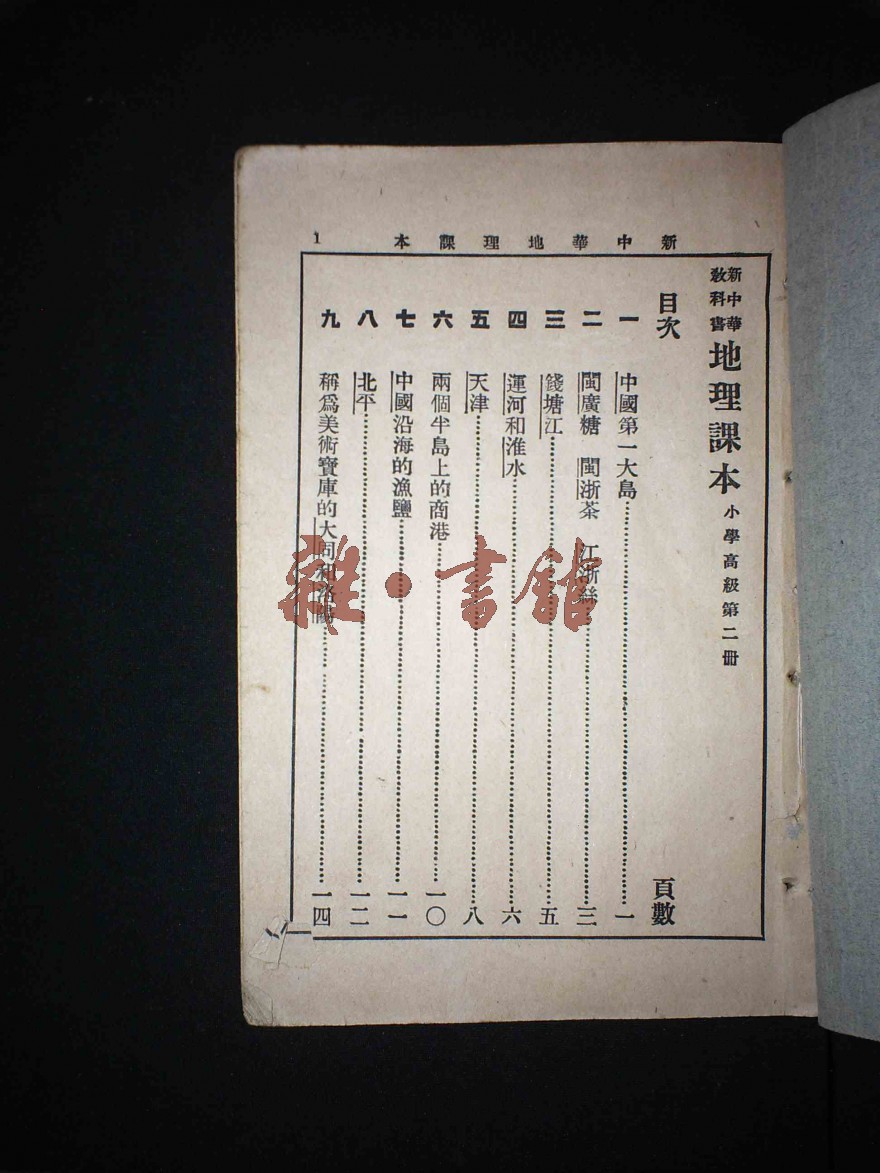 新中華地理課本
1
新中華教科書 地理課本 小學高級第二冊
目次 頁數
一 中國第一大島 一
二 閩廣糖 閩浙茶 江浙絲 三
三 錢塘江 五
四 運河和淮水 六
五 天津 八
六 兩個半島上的商港 一〇
七 中國沿海的漁鹽 一一
八 北平 一二
九 稱爲美術寶庫的大同和洛陽 一四
雜·書館